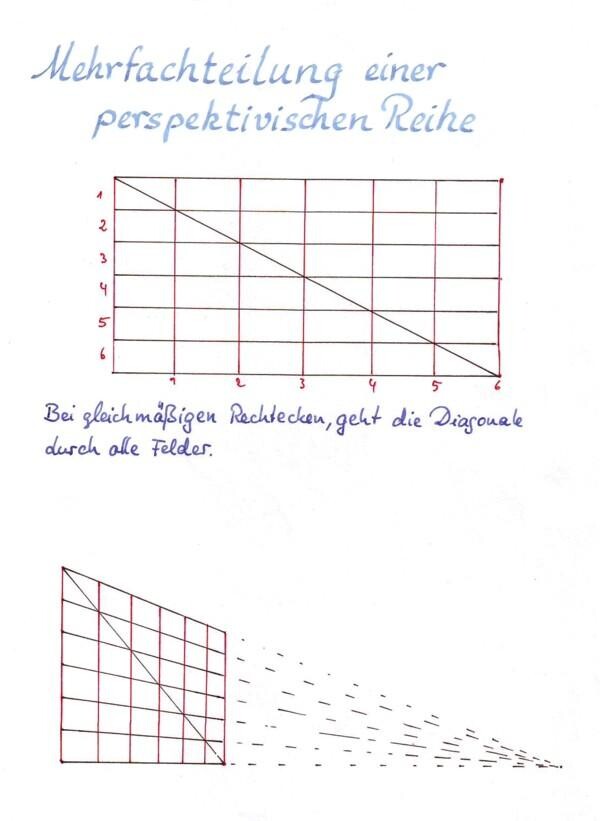 Mehrfachteilung einer
perspektivischen Reihe
1
2
3
4
5
6
1 2 3 4 5 6
Bei gleichmäßigen Rechtecken, geht die Diagonale
durch alle Felder.